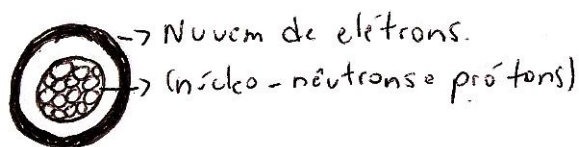 Nuvem de elétrons.
(núcleo - nêutrons e prótons)